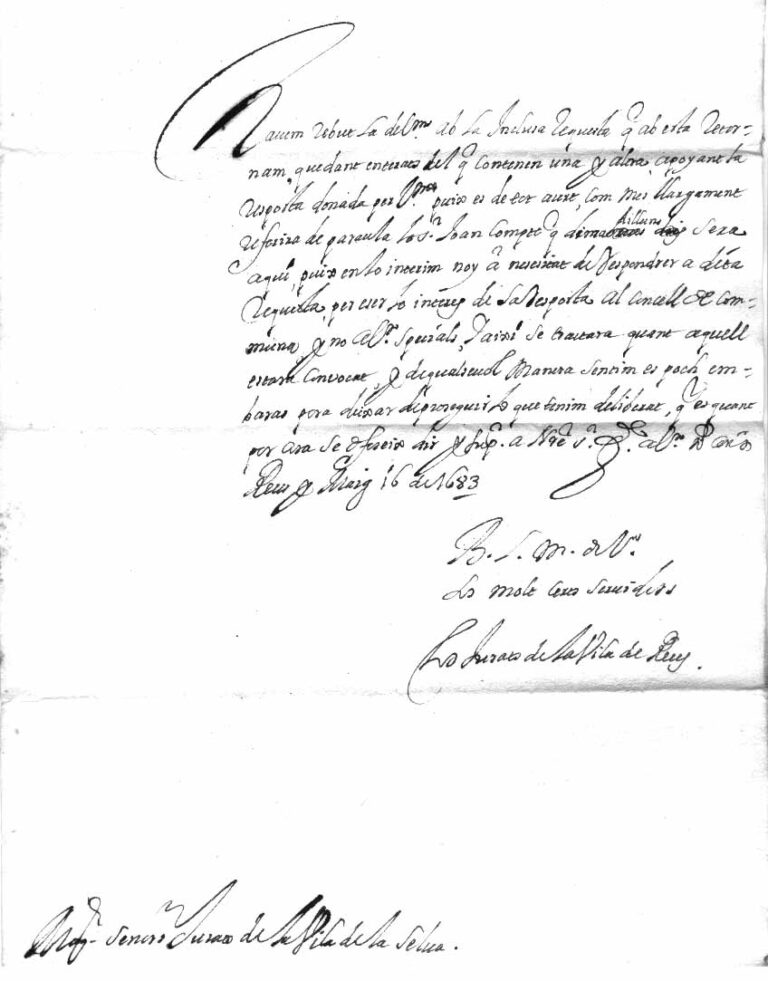 Havem rebut la de Vms ab la Inclusa requesta q ab esta retor-
nam, quedant enterats del q contenen una y altra, apoyant la
resposta donada per Vms puix es de tot acert, com mes llargament
referira de paraula lo Sr. Joan Compte q dilluns sera
aqui, puix en lo interim noy à necesitat de respondrer a dita
requesta, per esser lo interes de sa resposta al Concell de Com-
muna, y no a Vs. specials, y aixi se tractara quant aquell
estara convocat, y de qualsevol manera sentim es poch em-
baras pera deixar de proseguir lo que tenim deliberat, q es quant
per ara se ofereix dir y a Nre Sr. Gde. a Vms
Reus y Maig 16 de 1683
B. L. M. de Vs.
Los molt certs servidors
Los Jurats de la Vila de Reus.
Magchs Senors Jurats de la Vila de la Selva.